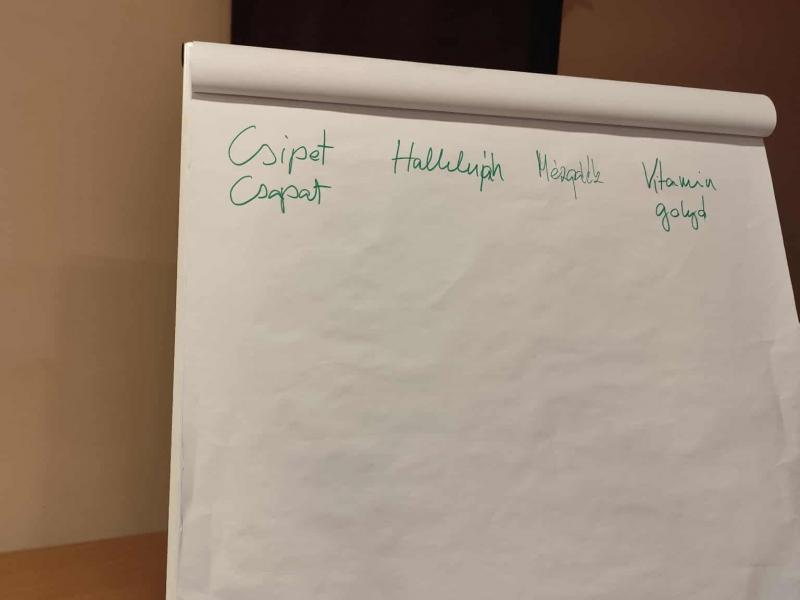 Csipet
Csapat
Hallelujáh
Mézgáék
Vitamin
golyó